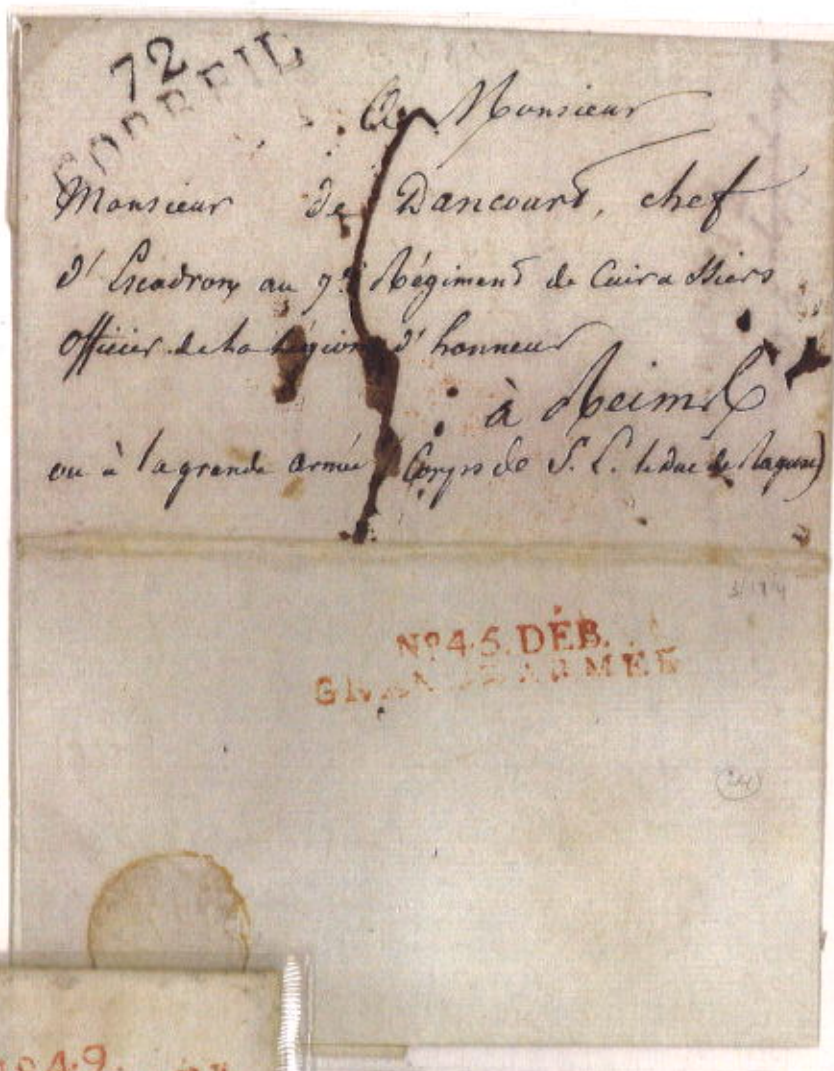 72
CORBEIL
A Monsieur
Monsieur de Dancourt, chef
d'Escadron au 9e Régiment de Cuirassiers
officier de la Légion d'honneur
à Reims
ou à la grande armée Corps de S. E. le Duc de Raguse)
Nº 45. DÉB.
GRANDE ARMÉE
24
49.